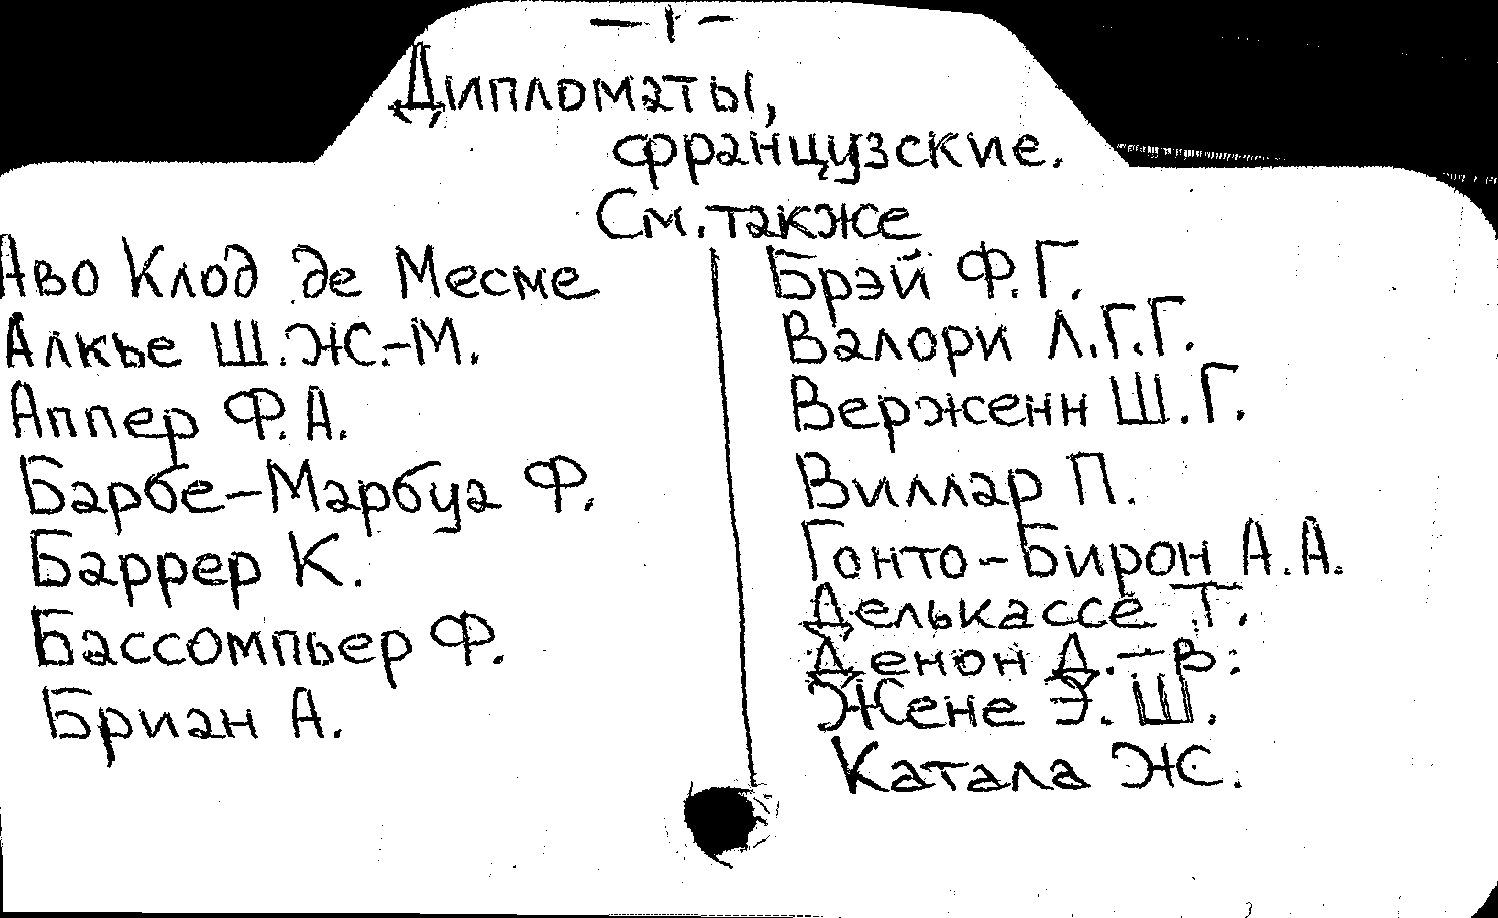 — 1 —
Дипломаты,
французские.
См. также
Аво Клод де Месме
Алкье Ш.Ж.-М.
Аппер Ф.А.
Барбе-Марбуа Ф.
Баррер К.
Бассомпьер Ф.
Бриан А.
Брэй Ф.Г.
Валори Л.Г.Г.
Верженн Ш.Г.
Виллар П.
Гонто-Бирон А.А.
Делькассе Т.
Денон Д.-В.
Жене Э.Ш.
Катала Ж.